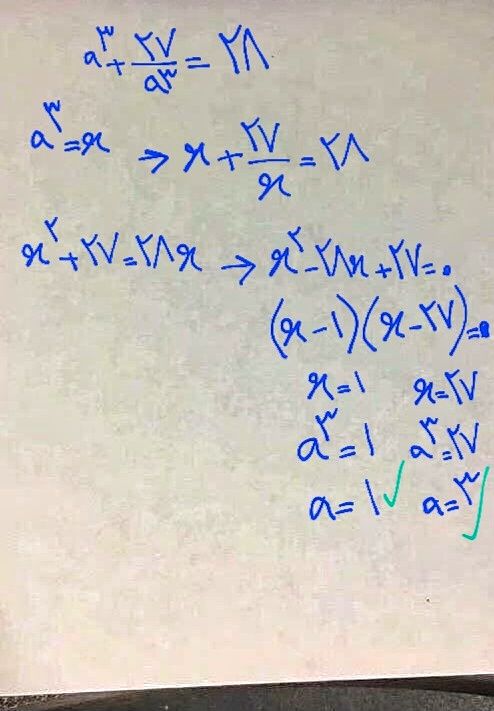 a^۳ + ۲۷/a^۳ = ۲۸
a^۳ = x → x + ۲۷/x = ۲۸
x^۲ + ۲۷ = ۲۸x → x^۲ - ۲۸x + ۲۷ = ۰
(x - ۱)(x - ۲۷) = ۰
x = ۱ x = ۲۷
a^۳ = ۱ a^۳ = ۲۷
a = ۱ ✓ a = ۳ ✓